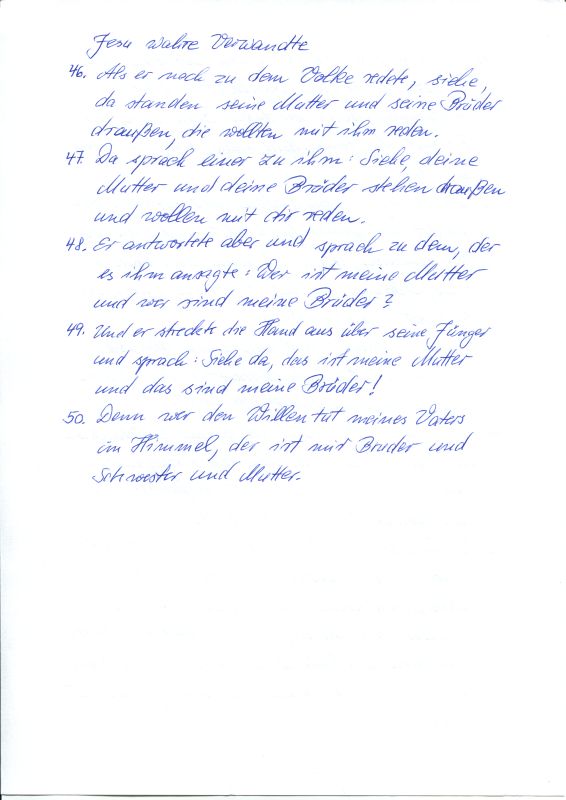 Jesu wahre Verwandte
46. Als er noch zu dem Volke redete, siehe,
da standen seine Mutter und seine Brüder
draußen, die wollten mit ihm reden.
47. Da sprach einer zu ihm: Siehe, deine
Mutter und deine Brüder stehen draußen
und wollen mit dir reden.
48. Er antwortete aber und sprach zu dem, der
es ihm ansagte: Wer ist meine Mutter
und wer sind meine Brüder?
49. Und er streckte die Hand aus über seine Jünger
und sprach: Siehe da, das ist meine Mutter
und das sind meine Brüder!
50. Denn wer den Willen tut meines Vaters
im Himmel, der ist mir Bruder und
Schwester und Mutter.